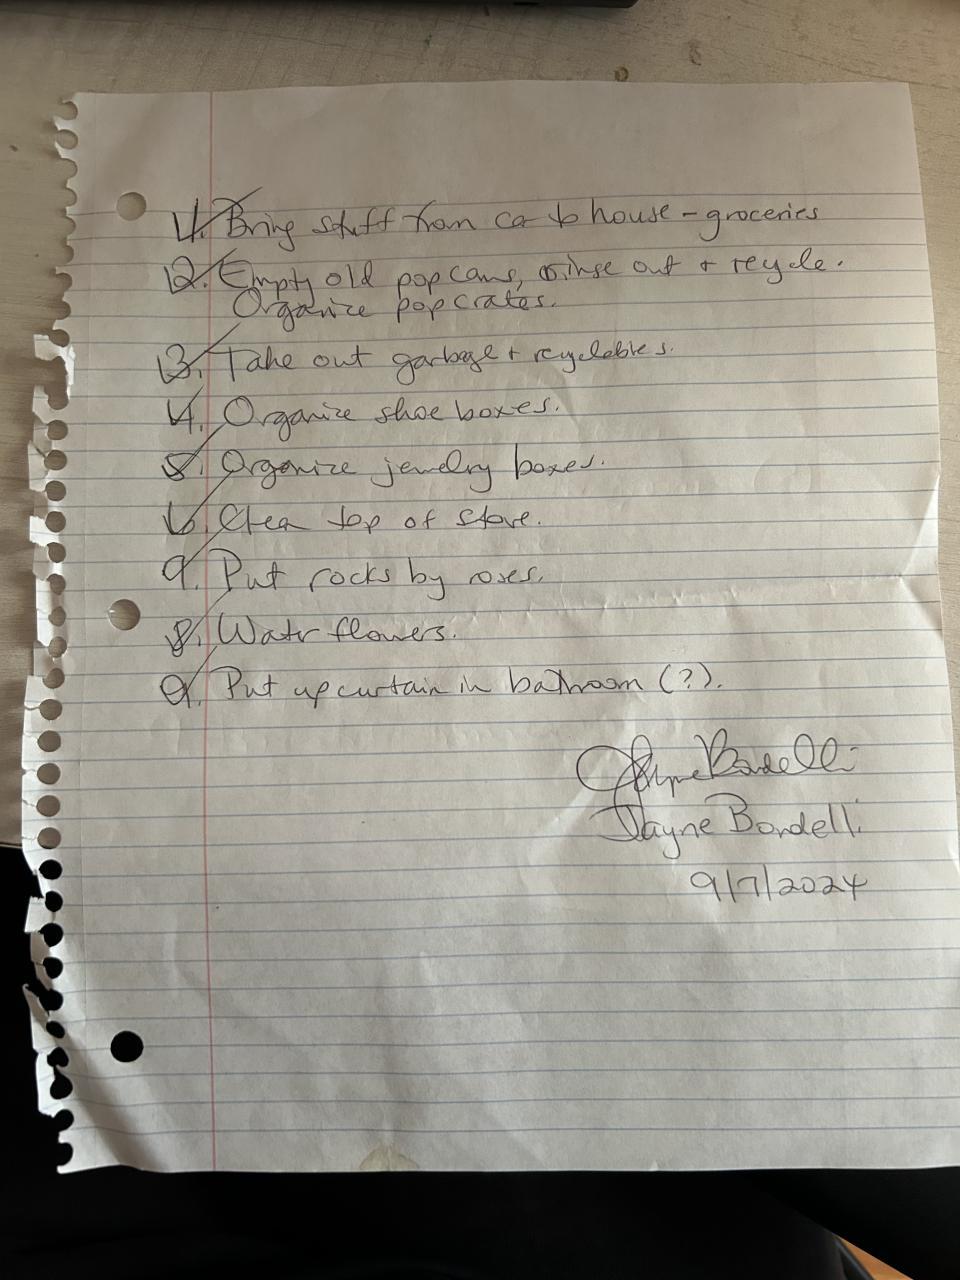 1. Bring stuff from car to house - groceries
2. Empty old pop cans, rinse out + recycle.
Organize pop crates.
3. Take out garbage + recyclables.
4. Organize shoe boxes.
5. Organize jewelry boxes.
6. Clean top of stove.
7. Put rocks by roses.
8. Water flowers.
9. Put up curtain in bathroom (?).
Jayne Bordelli
Jayne Bordelli
9/7/2024